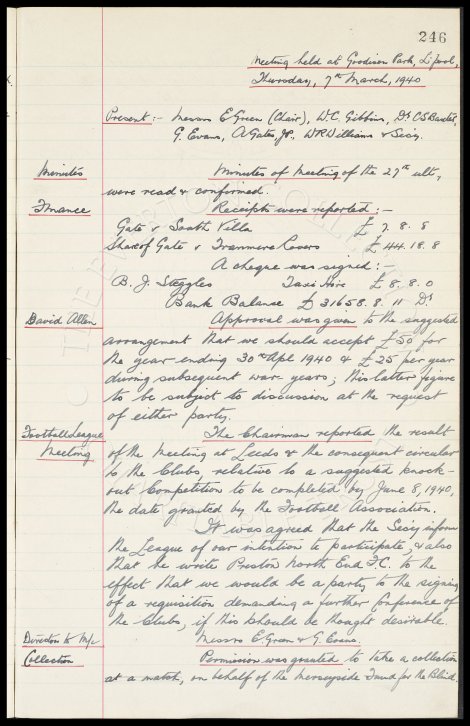 246
Meeting held at Goodison Park, L'pool,
Thursday, 7th March, 1940
Present:- Messrs E. Green (Chair), W.C. Gibbins, Dr C.S. Baxter,
G. Evans, A. Gates, Jr., W.R. Williams & Secy.
Minutes Minutes of Meeting of the 27th ult,
were read & confirmed.
Finance Receipts were reported:-
Gate v South Villa £ 7. 8. 8
Share of Gate v Tranmere Rovers £ 44. 18. 8
A cheque was signed:-
B. J. Steggles Taxi Hire £ 8. 8. 0
Bank Balance £ 31658. 8. 11 Dr
David Allen Approval was given to the suggested
arrangement that we should accept £50 for
the year ending 30th Apl 1940 & £25 per year
during subsequent war years; this latter figure
to be subject to discussion at the request
of either party.
Football League The Chairman reported the result
Meeting of the Meeting at Leeds & the consequent circular
to the Clubs, relative to a suggested knock-
out Competition to be completed by June 8, 1940,
the date granted by the Football Association.
It was agreed that the Secy inform
the League of our intention to participate, & also
that he write Preston North End F.C. to the
effect that we would be a party to the signing
of a requisition demanding a further Conference of
the Clubs, if this should be thought desirable.
Directors to M/c Messrs E. Green & G. Evans.
Collection Permission was granted to take a collection
at a match, on behalf of the Merseyside Fund for the Blind.